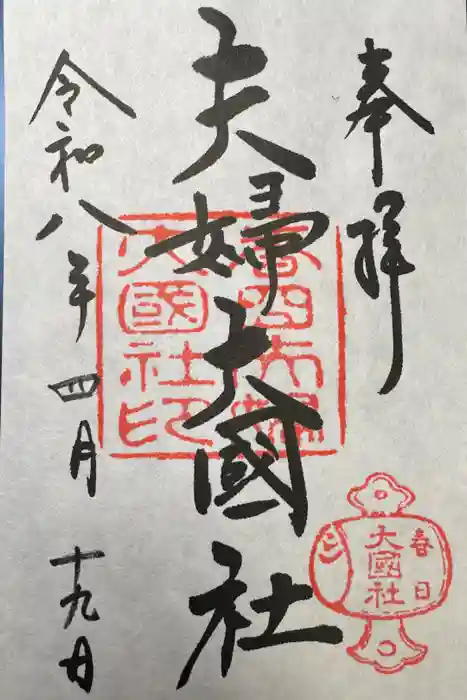 奉拝
夫婦大國社
令和八年四月十九日
春日夫婦
大國社印
春日
大國社